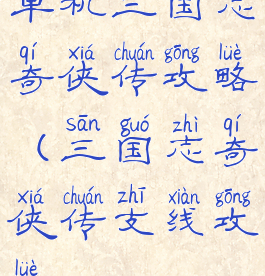 单机三国志
qí xiá chuán gōng lüè
奇侠传攻略
sān guó zhì qí
（三国志奇
xiá chuán zhī xiàn gōng
侠传支线攻
lüè